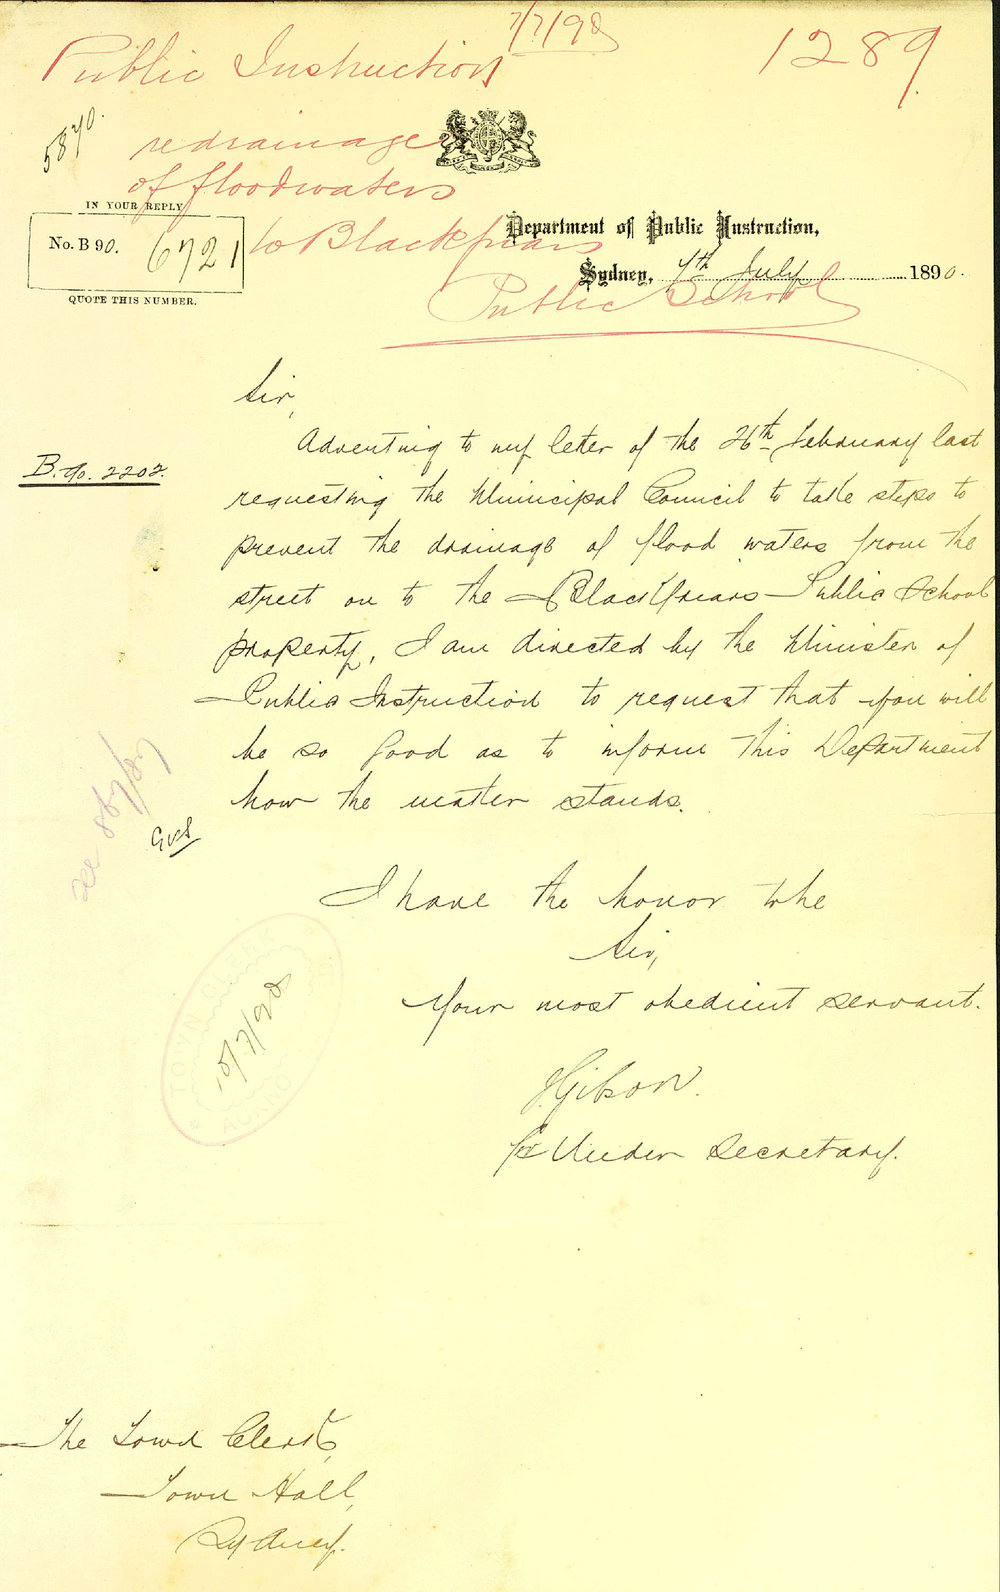 7/7/90
Public Instruction
1289
5870.
re drainage
of floodwaters
to Blackfriars
Public School
IN YOUR REPLY
No. B 90. 6721
QUOTE THIS NUMBER.
Department of Public Instruction,
Sydney, 7th July 1890.
Sir,
Adverting to my letter of the 26th February last
B.90. 2202.
requesting the Municipal Council to take steps to
prevent the drainage of flood waters from the
street on to the Blackfriars Public School
property, I am directed by the Minister of
Public Instruction to request that you will
be so good as to inform this Department
how the matter stands.
I have the honor to be
Sir,
Your most obedient servant.
J. Gibson.
for Under Secretary.
TOWN CLERK
The Town Clerk,
Town Hall,
Sydney.